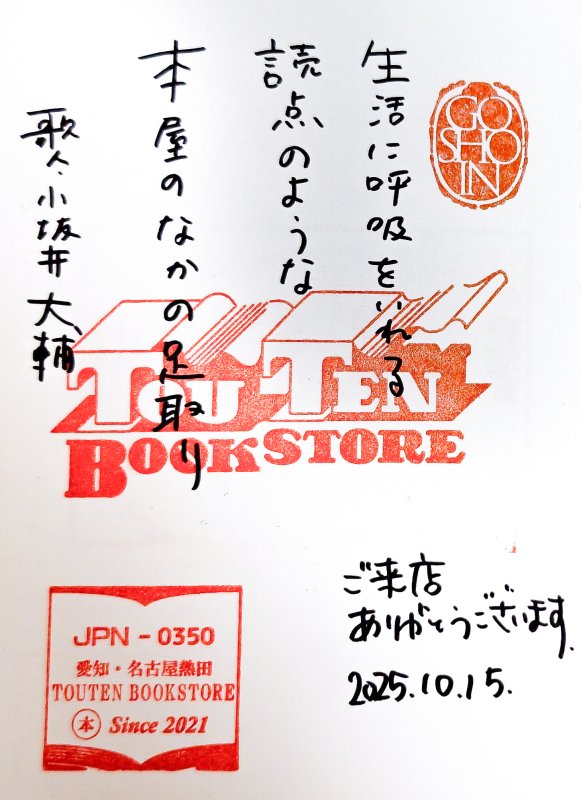 生活に呼吸をいれる
読点のような
本屋のなかの足取り
歌人・小坂井大輔
GO
SHO
IN
TOUTEN
BOOKSTORE
ご来店
ありがとうございます.
2025.10.15.
JPN - 0350
愛知・名古屋熱田
TOUTEN BOOKSTORE
本 Since 2021